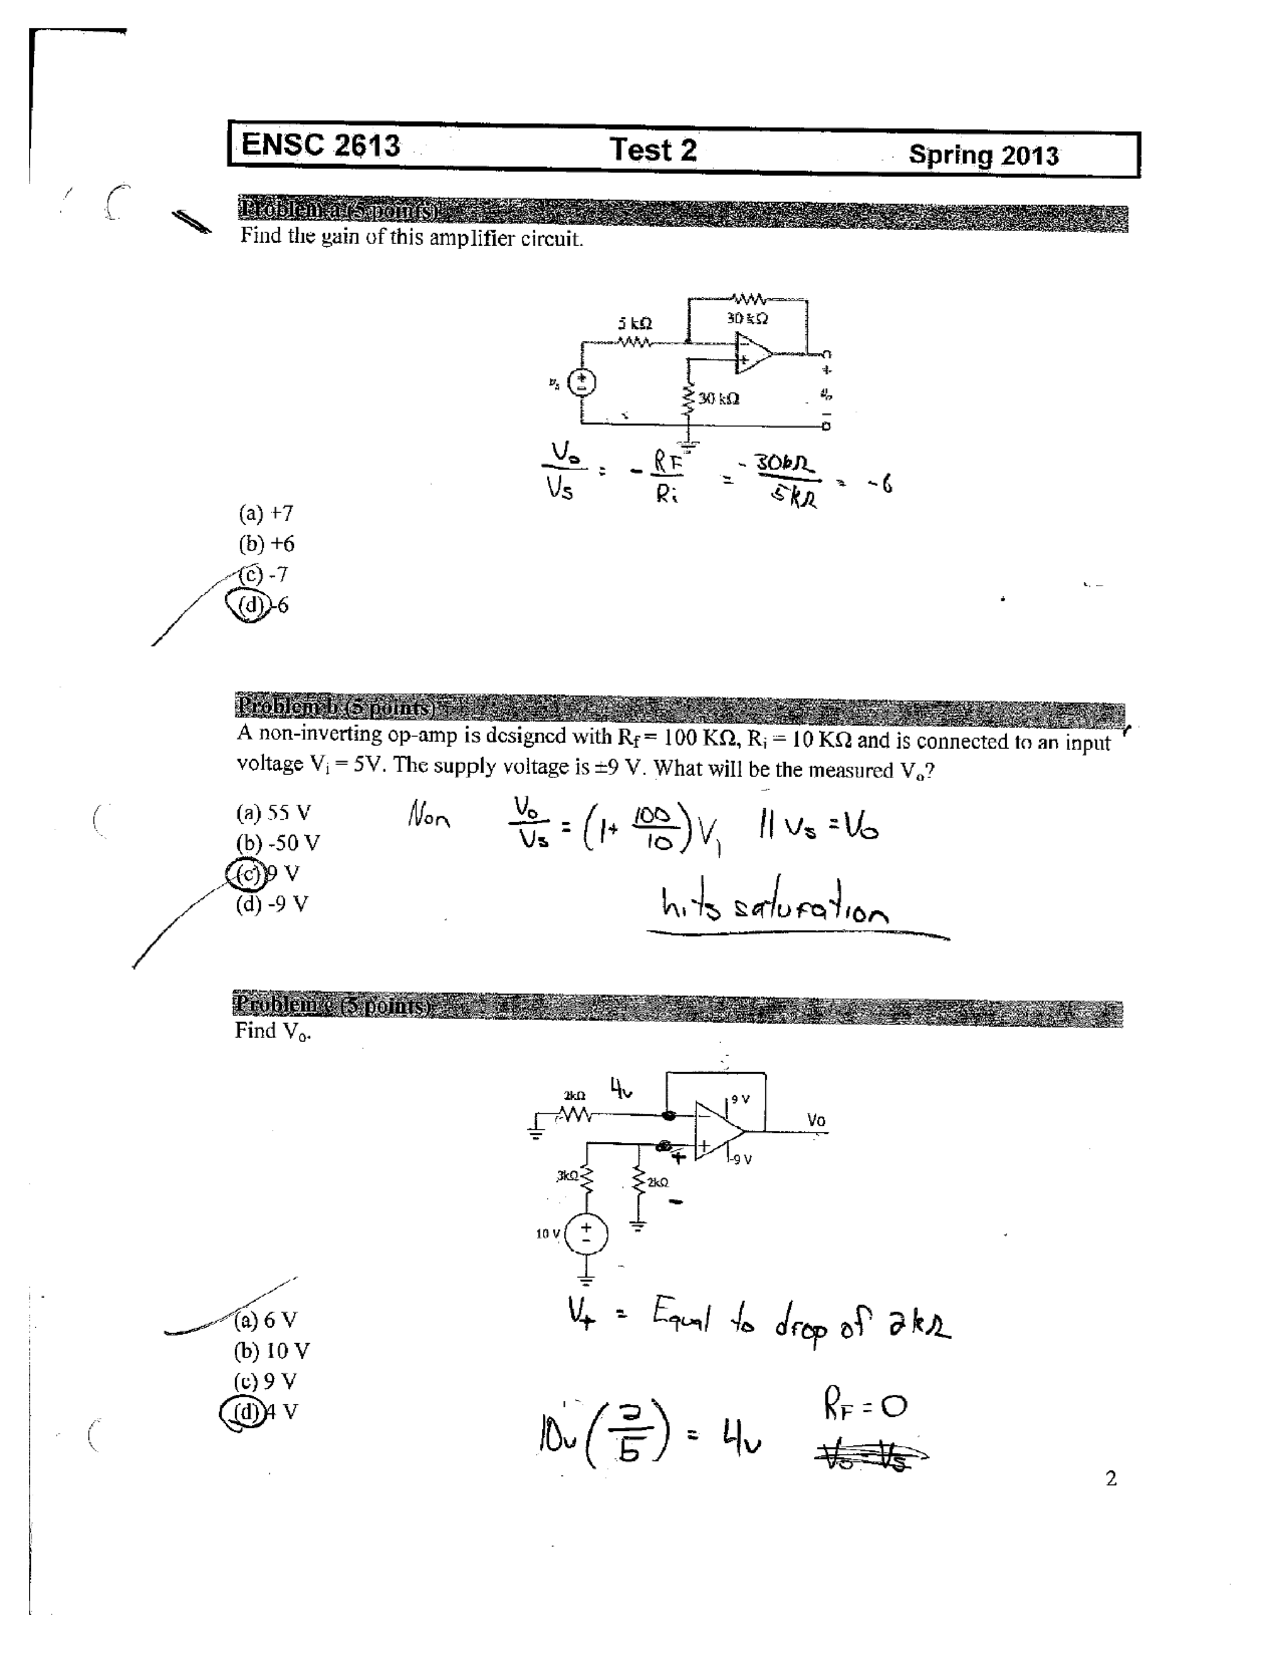 ENSC 2613 Test 2 Spring 2013
Problem a (5 points)
Find the gain of this amplifier circuit.
30 kΩ
5 kΩ
−
+
vs + −
30 kΩ
+
vo
−
Vo/Vs = - RF/Ri = -30kΩ/5kΩ = -6
(a) +7
(b) +6
(c) -7
(d) -6
Problem b (5 points)
A non-inverting op-amp is designed with Rf = 100 KΩ, Ri = 10 KΩ and is connected to an input
voltage Vi = 5V. The supply voltage is ±9 V. What will be the measured Vo?
(a) 55 V
(b) -50 V
(c) 9 V
(d) -9 V
Non Vo/Vs = (1+ 100/10) V1 11 Vs = Vo
hits saturation
Problem c (5 points)
Find Vo.
2kΩ 4v
9 V
Vo
−
+
-9 V
3kΩ
2kΩ
+
−
10 V + −
V+ = Equal to drop of 2kΩ
(a) 6 V
(b) 10 V
(c) 9 V
(d) 4 V
10v (2/5) = 4v RF = 0
2